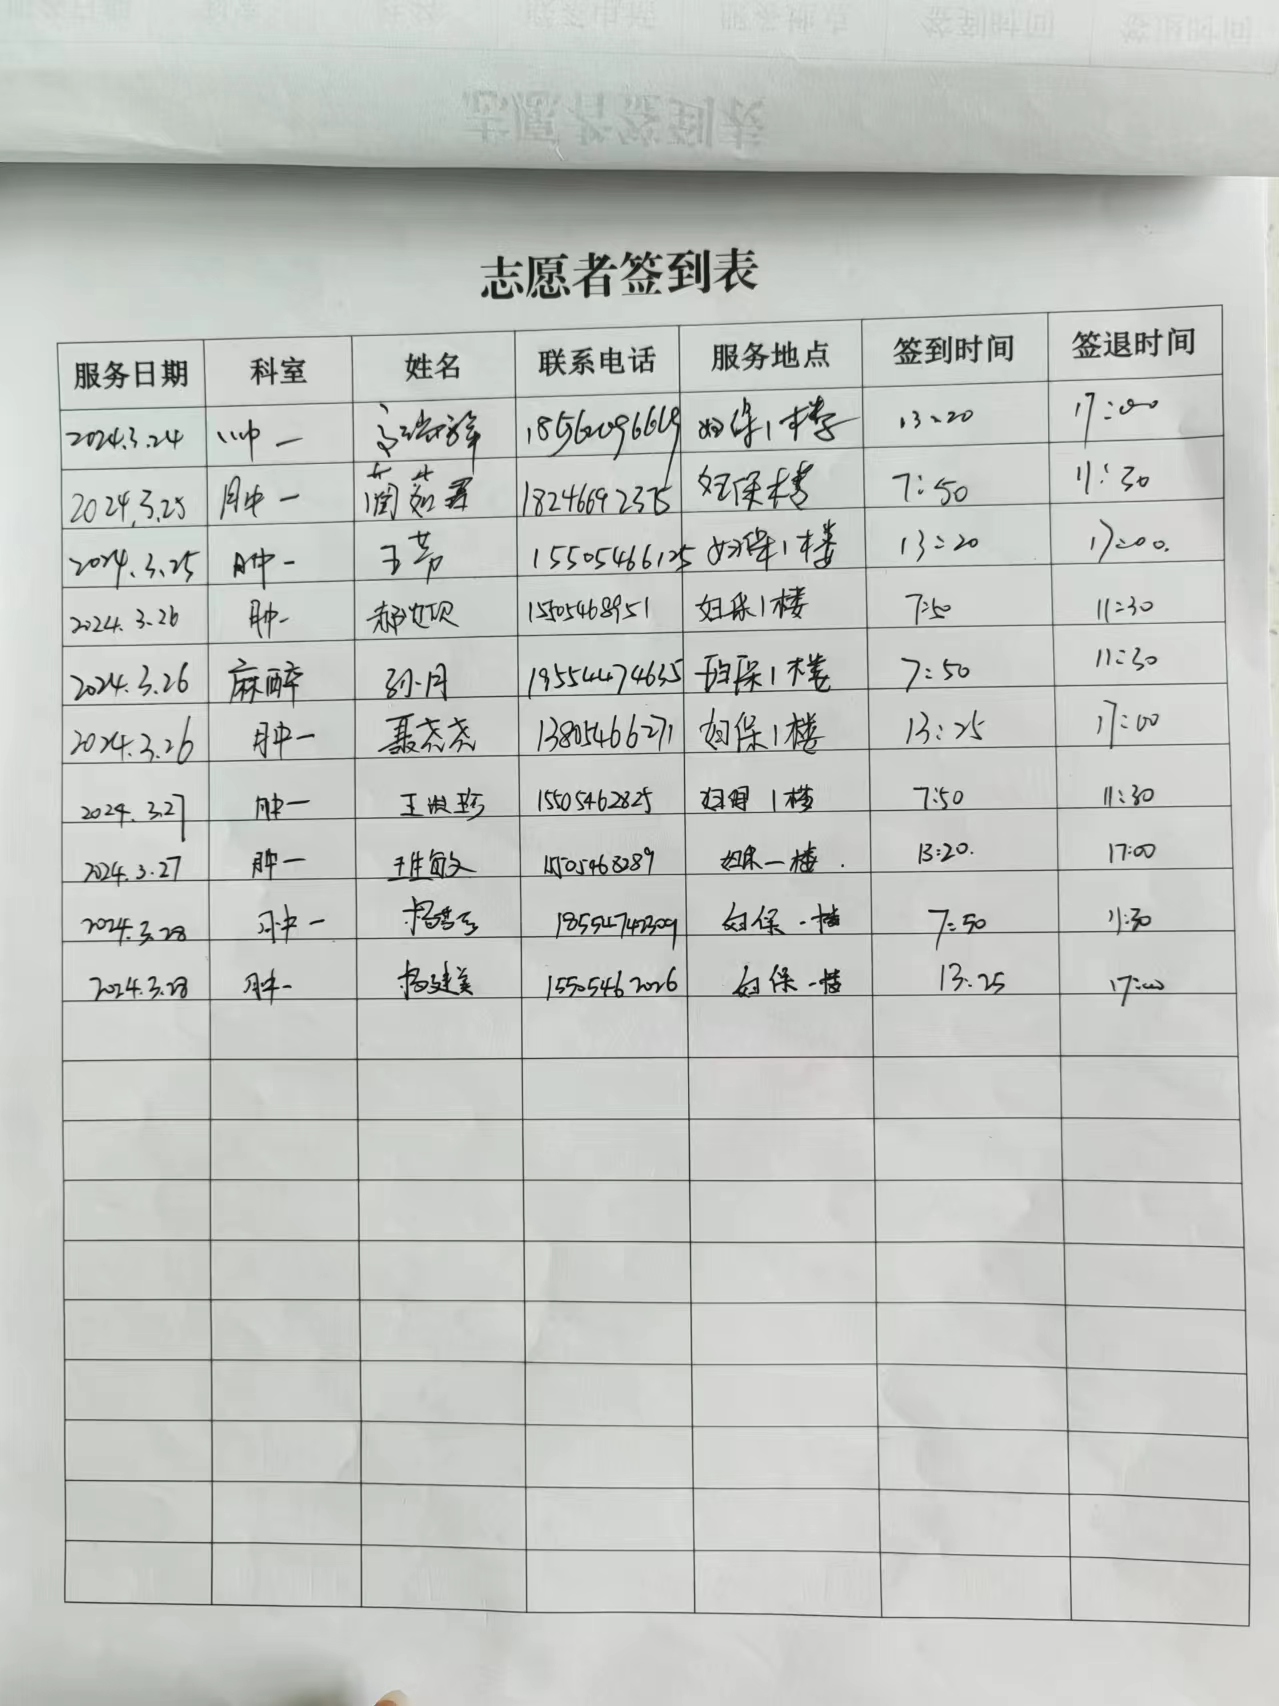 志愿者签到表
服务日期 科室 姓名 联系电话 服务地点 签到时间 签退时间
2024.3.24 肿一 18562096669 妇保1楼 13:20 17:00
2024.3.25 肿一 蔺茹军 18246692375 妇保楼 7:50 11:30
2024.3.25 肿一 王芳 15505466125 妇保1楼 13:20 17:00.
2024.3.26 肿一 郝 15505468951 妇保1楼 7:50 11:30
2024.3.26 麻醉 孙月 19554474635 妇保1楼 7:50 11:30
2024.3.26 肿一 聂尧尧 13805466271 妇保1楼 13:25 17:00
2024.3.27 肿一 王淑珍 15505462825 妇保1楼 7:50 11:30
2024.3.27 肿一 15505468289 妇保一楼. 13:20. 17:00
2024.3.28 肿一 杨 18554742309 妇保一楼 7:50 11:30
2024.3.28 肿一 杨建美 15505462026 妇保一楼 13:25 17:00